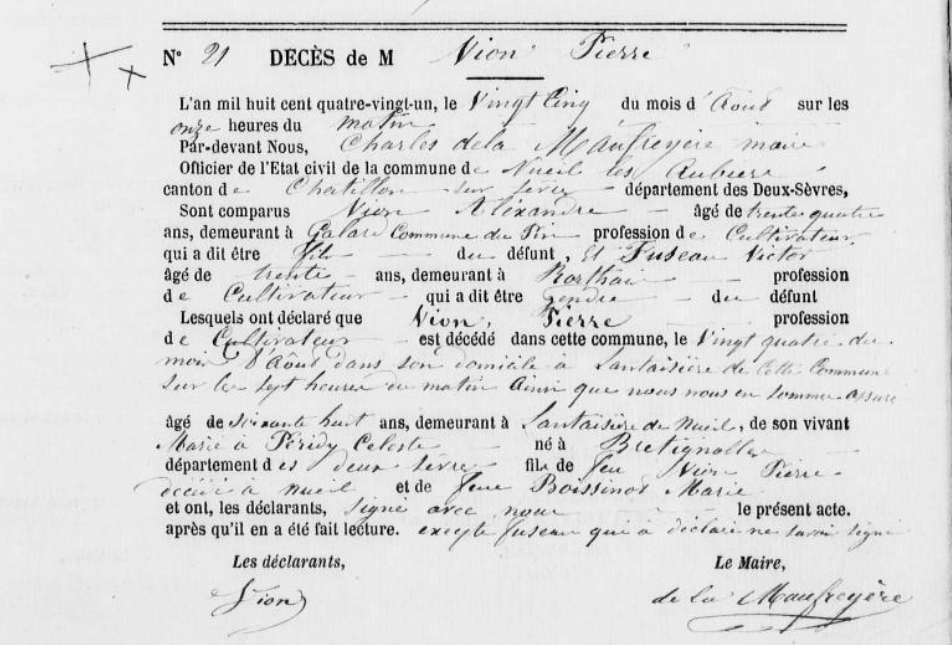 N° 21 DECÈS de M Nion Pierre
L'an mil huit cent quatre-vingt-un, le Vingt Cinq du mois d'Août sur les
onze heures du matin
Par-devant Nous, Charles de la Maufreyère maire
Officier de l'Etat civil de la commune de Nueil les Aubiers
canton de Chatillon sur Sèvre département des Deux-Sèvres,
Sont comparus Nion Alexandre âgé de trente quatre
ans, demeurant à Galard Commune du Pin profession de Cultivateur
qui a dit être fils du défunt, Et Fuseau Victor
âgé de trente ans, demeurant à Rorthais profession
de Cultivateur qui a dit être gendre du défunt
Lesquels ont déclaré que Nion, Pierre profession
de Cultivateur est décédé dans cette commune, le Vingt quatre du
mois d'Août dans son domicile à Lantaisière de cette Commune
sur les sept heures du matin ainsi que nous nous en sommes assuré
âgé de soixante huit ans, demeurant à Lantaisière de Nueil, de son vivant
Marié à Féridy Celeste né à Bretignolles
département des deux Sèvres fils de feu Nion Pierre
décédé à Nueil et de feue Boissinot Marie
et ont, les déclarants, signé avec nous le présent acte.
après qu'il en a été fait lecture. excepte fuseau qui a déclaré ne savoir signé
Les déclarants, Le Maire,
Nion de la Maufreyère